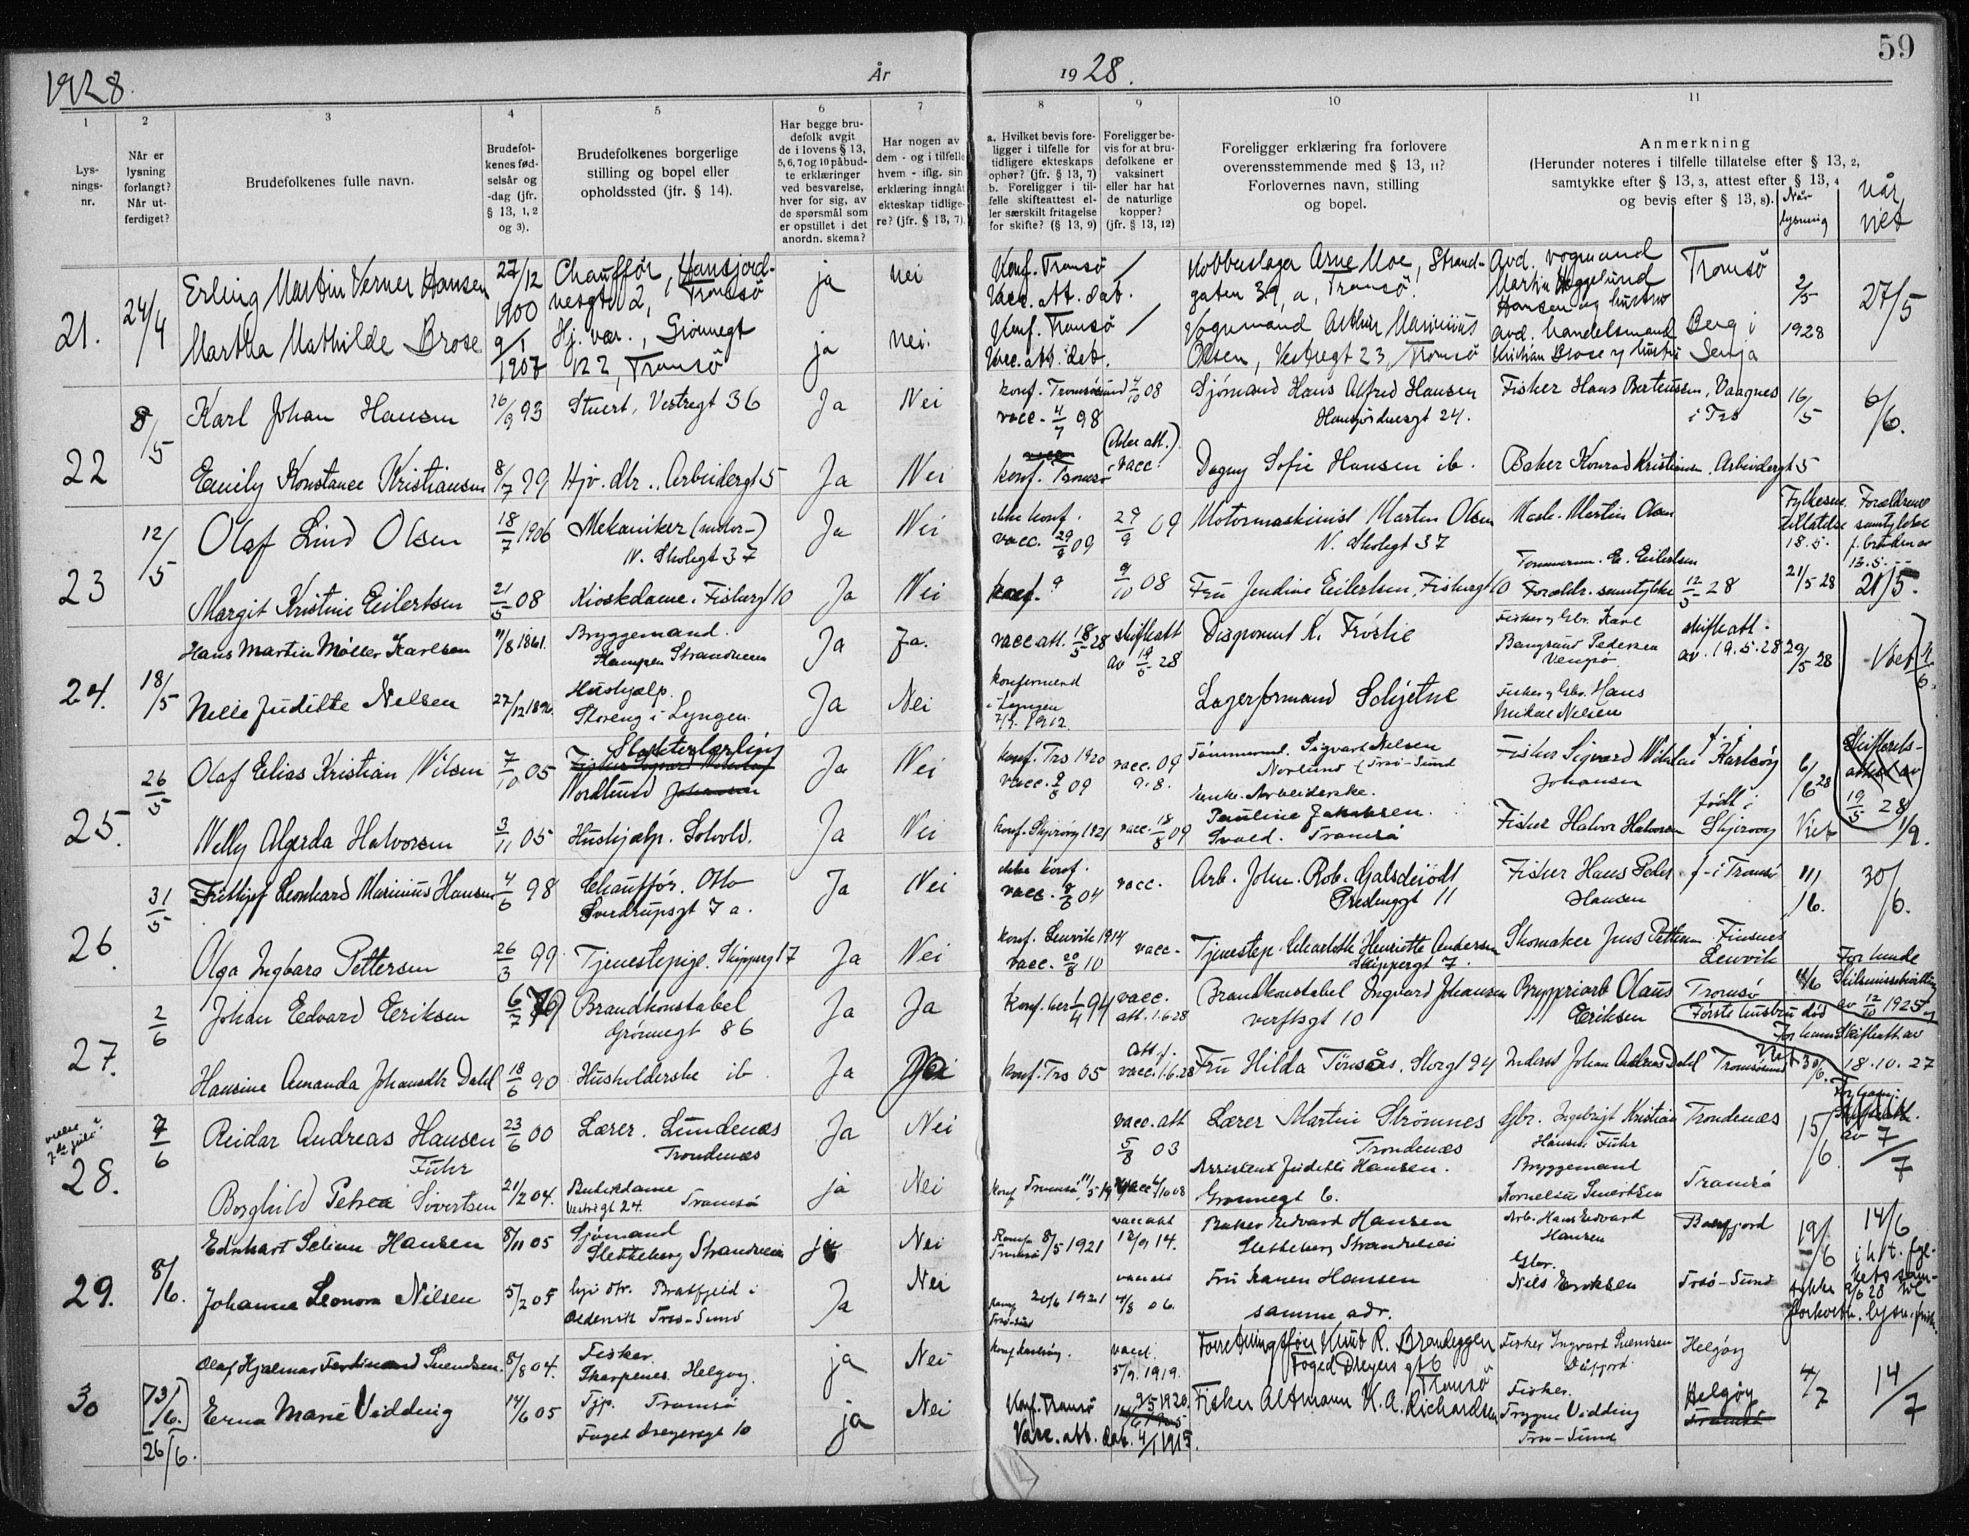 1928.
År
19 28.
59
1
2
3
4
5
6
7
8
9
10
11
Lys-
nings-
nr.
Når er
lysning
forlangt?
Når ut-
ferdiget?
Brudefolkenes fulle navn.
Brudefol-
kenes fød-
selsår og
-dag (jfr.
§ 13, 1, 2
og 3).
Brudefolkenes borgerlige
stilling og bopel eller
opholdssted (jfr. § 14).
Har begge bru-
defolk avgit
de i lovens § 13,
5, 6, 7 og 10 påbud-
te erklæringer
ved besvarelse,
hver for sig, av
de spørsmål som
er opstillet i det
anordn. skema?
Har nogen av
dem - og i tilfelle
hvem - iflg. sin
erklæring inngått
ekteskap tidlige-
re? (jfr. § 13, 7).
a. Hvilket bevis fore-
ligger i tilfelle for
tidligere ekteskaps
ophør? (jfr. § 13, 7)
b. Foreligger i til-
felle skifteattest el-
ler særskilt fritagelse
for skifte? (§ 13, 9)
Foreligger be-
vis for at bru-
defolkene er
vaksinert
eller har hat
de naturlige
kopper?
(jfr. § 13, 12)
Foreligger erklæring fra forlovere
overensstemmende med § 13, 11?
Forlovernes navn, stilling
og bopel.
Anmerkning
(Herunder noteres i tilfelle tillatelse efter § 13, 2,
samtykke efter § 13, 3, attest efter § 13, 4
og bevis efter § 13, 8).
Når
lysning
når
viet
21. 24/4
Erling Martin Verner Hansen 27/12 1900 Chauffør, Hansjord-
nesgt 2, Tromsö ja nei Konf. Tromsö /
Vacc. att. dat. Kobberslager Arne Moe, Strand-
gaten 39, a, Tromsö. Avd. vogmand
Martin Heggelund
Hansen og hustru Tromsö 2/5 1928 27/5
Martha Mathilde Brose 9/1 1907 Hj. vær., Grönnegt
122, Tromsö ja nei. Konf. Tromsö /
Vacc. att. dat. Vogmand Arthur Marinius
Olsen, Vestregt 23, Tromsö avd. handelsmand
Kristian Brose og hustru Berg i
Senja
22 8/5
Karl Johan Hansen 26/9 93 Stuert, Vestregt 36 Ja Nei konf. Tromsøsund 4/10 08
vacc. 4/7 98 Sjømand Hans Alfred Hansen
Hansjordnesgt 24. Fisker Hans Berteussen, Vaagnes
i Trs 16/5 6/6.
Emily Konstance Kristiansen 8/7 99 Hjv. dtr., Arbeidergt 5 Ja Nei konf. Tromsø (uten att.)
vacc. Dagny Sofie Hansen ib. Baker Konrad Kristiansen, Arbeidergt 5
23 12/5
Olaf Lind Olsen 18/7 1906 Mekaniker (motor-)
N. Skolegt 37 Ja Nei ikke konf.
vacc. 29/9 09 29/9 09 Motormaskinist Martin Olsen
N. Skolegt 37 Mask. Martin Olsen Fylkesm.
tillatelse
18.5. Forældrenes
samtykke
f. bruden av
13.5.
Margit Kristine Eilertsen 21/5 08 Kioskdame. Fiskergt 10 Ja Nei konf. ? 9/10 08 Fru Jendine Eilertsen, Fiskergt 10 Tømmerm. E. Eilertsen
Forældr. samtykke 12/5 28 21/5 28 21/5.
24. 18/5
Hans Martin Møller Karlsen 11/8 1861. Bryggemand.
Kampen Strandveien Ja Ja. vacc att. 18/5 28 skifteatt
av 19/5 28 Disponent K. Frøslie Fisker og Gbr. Karl
Bangsund Pedersen
Vengsø skifteatt.
av. 19.5.28 29/5 28 Viet 1/6.
Nelle Juditte Nelsen 27/12 1896. Hushjælp.
Storeng i Lyngen. Ja Nei konfirmerd
i Lyngen
7/7. 1912. Lagerformand Schjetne Fisker og Gbr. Hans
Mikal Nelsen
25. 26/5
Olaf Elias Kristian Nilsen 7/10 05 Slakterlærling
Nordlund Ja Nei konf. Trs 1920
vacc. 9/8 09 vacc. 09
9.8. Tömmermd. Sigvart Nelsen
Norlund i Trsö-Sund Fisker Sigvard Nikolai
Johansen f. i Karlsöy 6/6 28 Skifterets-
attest av
19/5 28
Nelly Algerda Halvorsen 3/11 05 Hushjælp. Solvold. Ja Nei konf. Skjervøy 1921 vacc. 18/8 09 Enke. Arbeiderske.
Pauline Jakobsen.
Tromsö Fisker Halvor Halvorsen født i
Skjervøy Viet 1/9.
26. 31/5
Frithjof Leonhard Marinius Hansen 4/6 98 Chauffør. Otto
Sverdrupsgt 7 a. Ja Nei ikke konf.
vacc. 8/6 04 vacc. Arb. Johen. Rob. Galsdeiødt
Fredensgt 11 Fisker Hans Peder
Hansen f. i Tromsö 11/6. 30/6.
Olga Ingbara Pettersen 26/3 99 Tjenestepige. Skippergt 7 Ja Nei konf. Lenvik 1914
vacc. 20/8 10 vacc. Tjenestep. Charlotte Henriette Andersen
Skippergt 7. Skomaker Jens Pettersen Finsnes
Lenvik
27. 2/6
Johan Edvard Eriksen 6/7 79 Brandkonstabel
Grönnegt 86 Ja Ja Konf. her 1/4 94 vacc.
att. 1.6.28 Brandkonstabel Ingvard Johansen
verftsgt 10 Bryggeriarb Olaus
Eriksen Tromsø
Første hustru död For hende
Skilsmissebevilling
av 12/10 1925
For ham Skifteatt. av
18.10.27
Hansine Amanda Johansdtr Dahl 18/6 90 Husholderske ib. Ja Ja konf. Trs 05 att. f.
vacc. 1.6.28 Fru Hilda Tønsås. Storgt 94 Inderst Johan Andreas Dahl Tromsøsund Viet 30/6.
28. 7/6
Reidar Andreas Hansen
Fuhr 23/6 00 Lærer. Lundenes
Trondenæs Ja Nei vacc. att
5/8 03 Lærer Martin Strømnes
Trondenæs Gbr. Ingebrigt Kristian
Hansen Fuhr Trondenæs 15/6 7/7
Borghild Petrea Sivertsen 21/2 04. Butikdame
Vestregt 24. Tromsö ja Nei Konf Tromsö Assistent Juditte Hansen.
Grønnegt 6. Bryggemand
Kornelius Sivertsen Tromsö
29. 8/6.
Edvart Selian Hansen 8/11 05 Sjømand
Sletteberg Strandveien ja Nei Konf.
Tromsö 8/5 1921 vacc att
12/9 14. Baker Edvard Hansen
Sletteberg Strandveien Arb. Hans Edvard
Hansen Balsfjord 19/6 14/6
Johanna Leonora Nilsen 5/2 05 hjv dtr. Bratfjeld i
Trsö-Sund Ja Nei 20/6 1921
Trsö-sund vacc att
4/8 06. Fru Karen Hansen
samme adr. Gbr.
Nils Eriksen Trsö-Sund
30 [13/6.] 26/6.
Olaf Hjalmar Ferdinand Svendsen. 8/8 04. Fisker.
Skarpenes. Helgøy. ja Nei Konf Karlsøy. vacc.
5/9. 1919. Forretningsfører Knut R. Brandeggen
Foged Dreyers gt 6
Tromsö Fisker Ingvart Svendsen
Dåfjord. Helgøy 4/7 14/7
Erna Marie Vidding 14/6 05 Tjp. Tromsö
Foged Dreyersgt 10 ja Nei Konf. Tromsö 9/5 1920
Vacc. att. dat. 4/1 1915. Fisker Altmann K. A. Richardsen Fisker.
Trygve Vidding
Trsö-Sund Helgøy